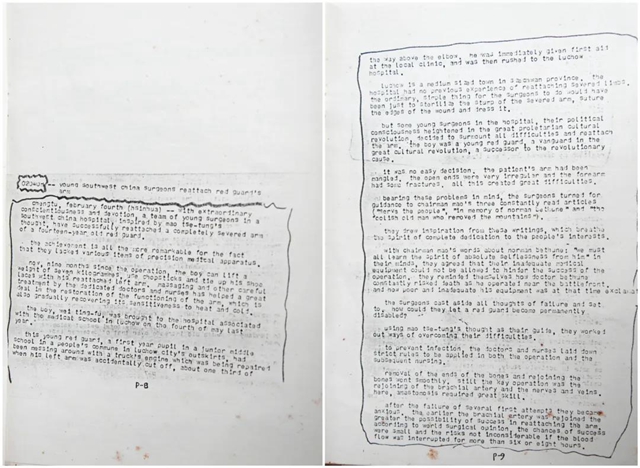 -- young southwest china surgeons reattach red guard's
arm
chengtu, february fourth (hsinhua) -- with extraordinary
conscientiousness and devotion, a team of young surgeons in a
southwest china hospital, inspired by mao tse-tung's
thought, have successfully reattached a completely severed arm
of a fourteen-year-old red guard.
the achievement is all the more remarkable for the fact
that they lacked various items of precision medical apparatus.
now, nine months since the operation, the boy can lift a
weight of seven kilogrammes, use chopsticks and tie up his shoe
laces with his reattached left arm. massaging and other careful
treatment by the dedicated doctors and nurses has helped a great
deal in the restoration of the functioning of the arm, which is
also gradually recovering its sensitiveness to heat and cold.
the boy, was brought to the hospital associated
with the medical school in luchow on the fourth of may last
year.
this young red guard, a first year pupil in a junior middle
school in a people's commune in luchow city's outskirts, had
been messing around with a truck's engine which was being repaired
when his left arm was accidentally cut off, about one third of
P-8
the way above the elbow. he was immediately given first aid
at the local clinic, and was then rushed to the luchow
hospital.
luchow is a medium sized town in szechwan province. the
hospital had no previous experience of reattaching severed limbs.
the ordinary, simple thing for the surgeons to do would have
been just to sterilize the stump of the severed arm, suture
the edges of the wound and dress it.
but some young surgeons in the hospital, their political
consciousness heightened in the great proletarian cultural
revolution, decided to surmount all difficulties and reattach
the arm. the boy was a red guard, a vanguard in the
great cultural revolution, a successor to the revolutionary
cause.
it was no easy decision. the patient's arm had been
mangled. the open ends were very irregular and the forearm
had some fractures. all this created great difficulties.
bearing these problems in mind, the surgeons turned for
guidance to chairman mao's three constantly read articles
("serve the people", "in memory of norman bethune" and "the
foolish old man who removed the mountains").
they drew inspiration from these writings, which breathe
the spirit of complete dedication to the people's interests.
with chairman mao's words about norman bethune: "we must
all learn the spirit of absolute selflessness from him" in
their minds, they agreed that their inadequate medical
equipment could not be allowed to hinder the success of the
operation. they reminded themselves how doctor bethune
constantly risked death as he operated near the battlefront,
and how poor and inadequate his equipment was at that time
the surgeons cast aside all thoughts of failure and set
to. how could they let a red guard become permanently
disabled?
using mao tse-tung's thought as their guide, they worked
out ways of overcoming their difficulties.
to prevent infection, the doctors and nurses laid down
strict rules to be applied in both the operation and the
subsequent nursing.
removal of the ends of the bones and rejoining the
bones went smoothly. still the key operation was the
rejoining of the brachial artery and the nerves and veins.
here, anastomosis required great skill.
after the failure of several first attempts they became
anxious. the earlier the brachial artery was rejoined the
greater the possibility of success in reattaching the arm.
according to world surgical opinion, the chances of success
were small and the risks not inconsiderable if the blood
flow was interrupted for more than six or eight hours.
P-9